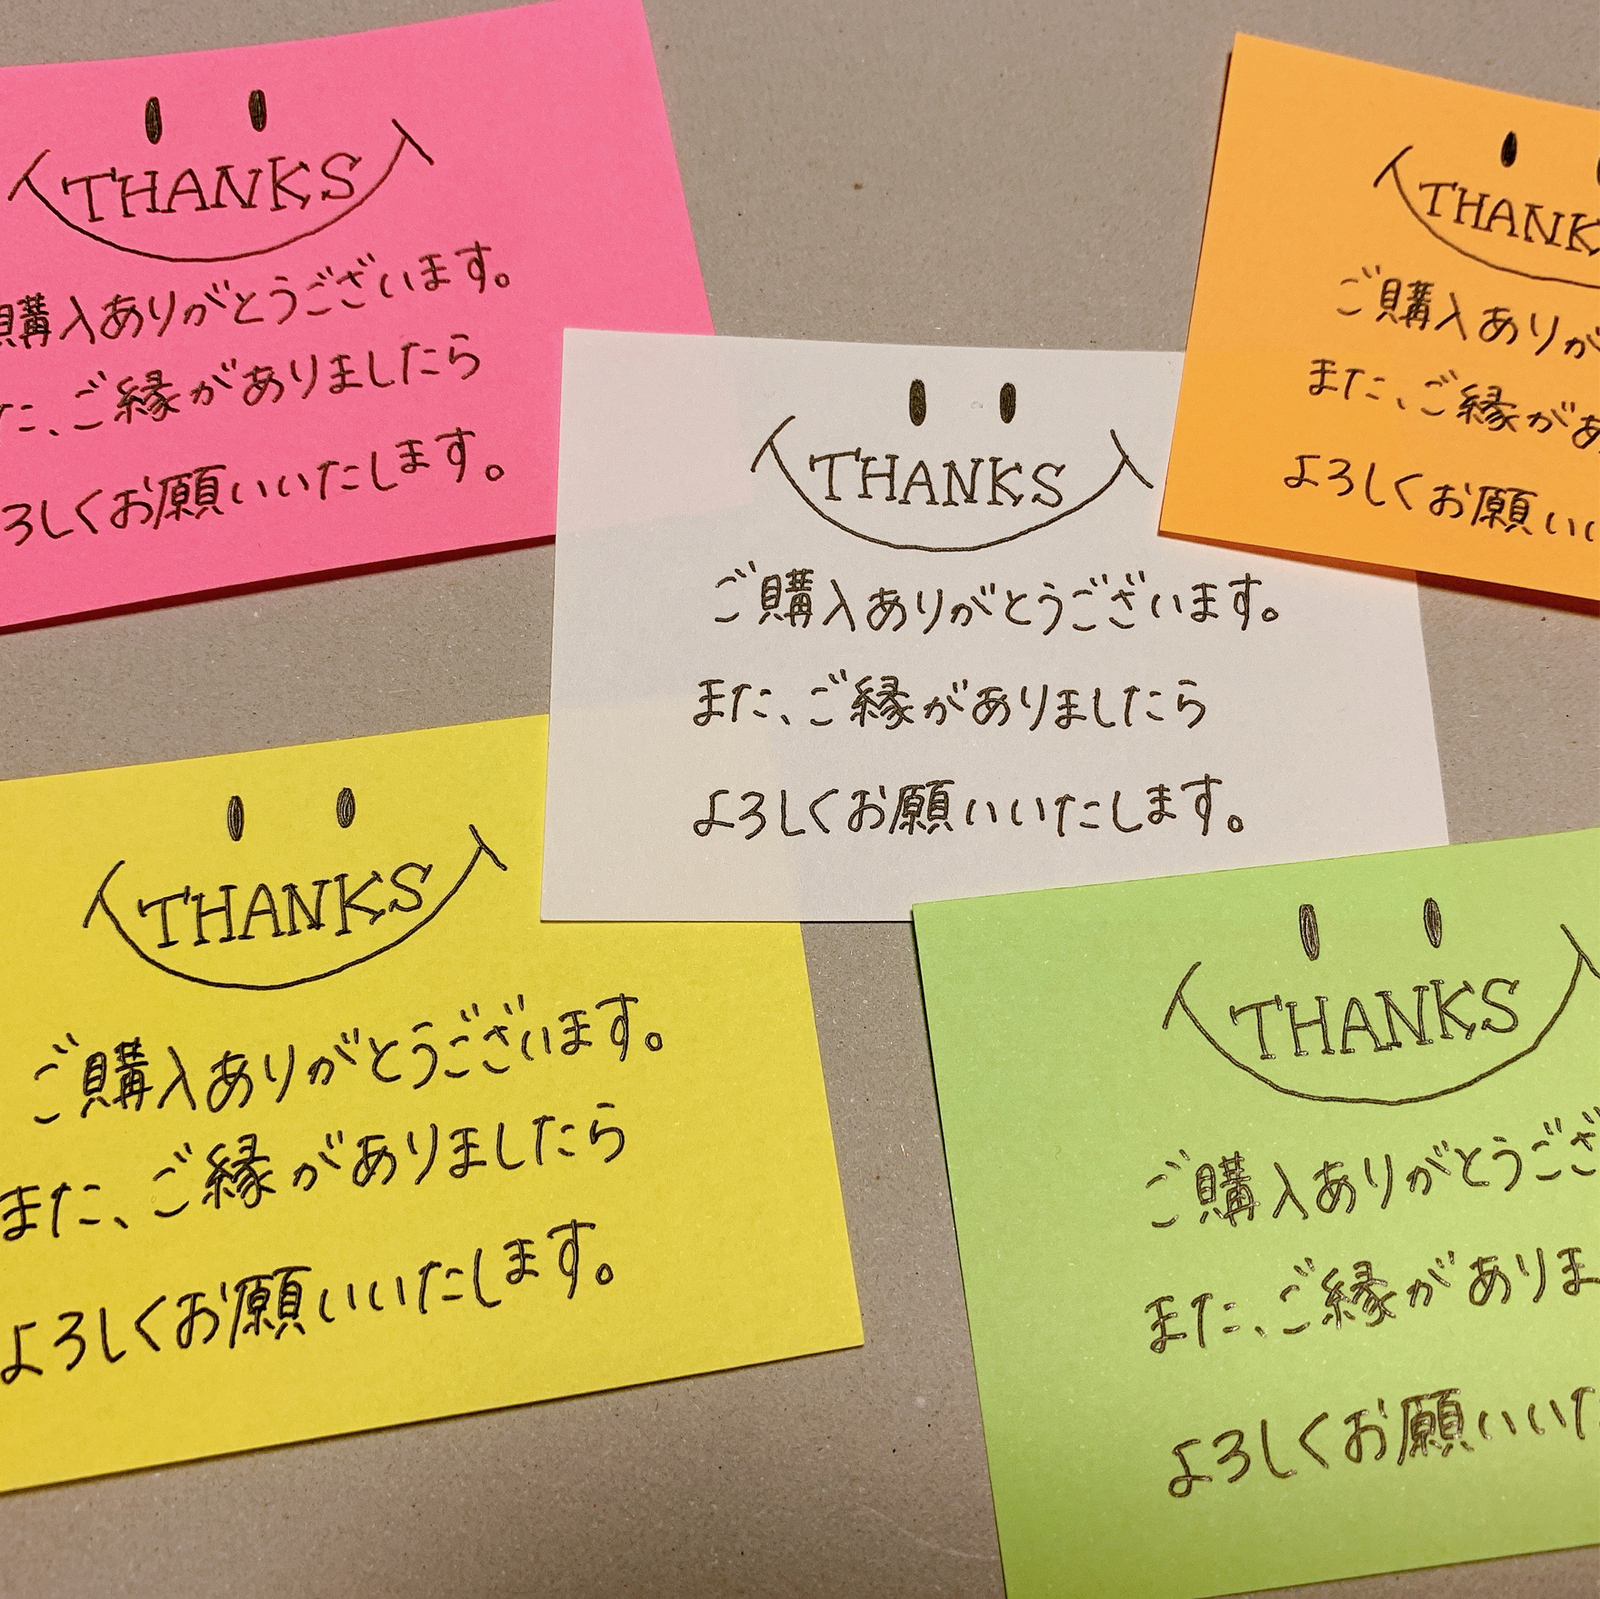 THANKS
購入ありがとうございます。
た、ご縁がありましたら
ろしくお願いいたします。
THANKS
ご購入ありが
また、ご縁があ
よろしくお願いい
THANKS
ご購入ありがとうございます。
また、ご縁がありましたら
よろしくお願いいたします。
THANKS
ご購入ありがとうございます。
また、ご縁がありましたら
よろしくお願いいたします。
THANKS
ご購入ありがとうござ
また、ご縁がありま
よろしくお願いいた